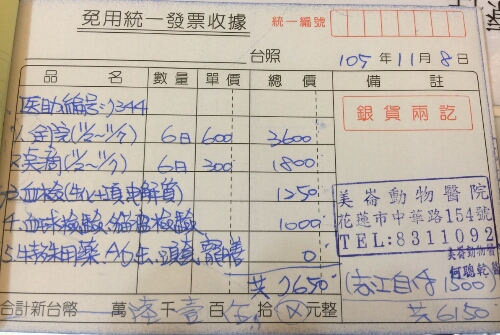 免用統一發票收據
統一編號
台照 105年11月8日
品名 數量 單價 總價 備註
医助編号:1344
1. 住院(11/2~11/7) 6日 600 3600
2. 点滴(11/2~11/7) 6日 300 1800
3. 血檢(生化4項, 電解質) 1250
4. 血球檢驗 1000
5. 特殊用藥 AD缶, 頭套 0
共 7650
銀貨兩訖
美崙動物醫院
花蓮市中華路154號
TEL:8311092
美崙動物醫
何聰乾
(志工自付 1500)
合計新台幣 萬 陸 千 壹 百 伍 拾 元整
共 6150